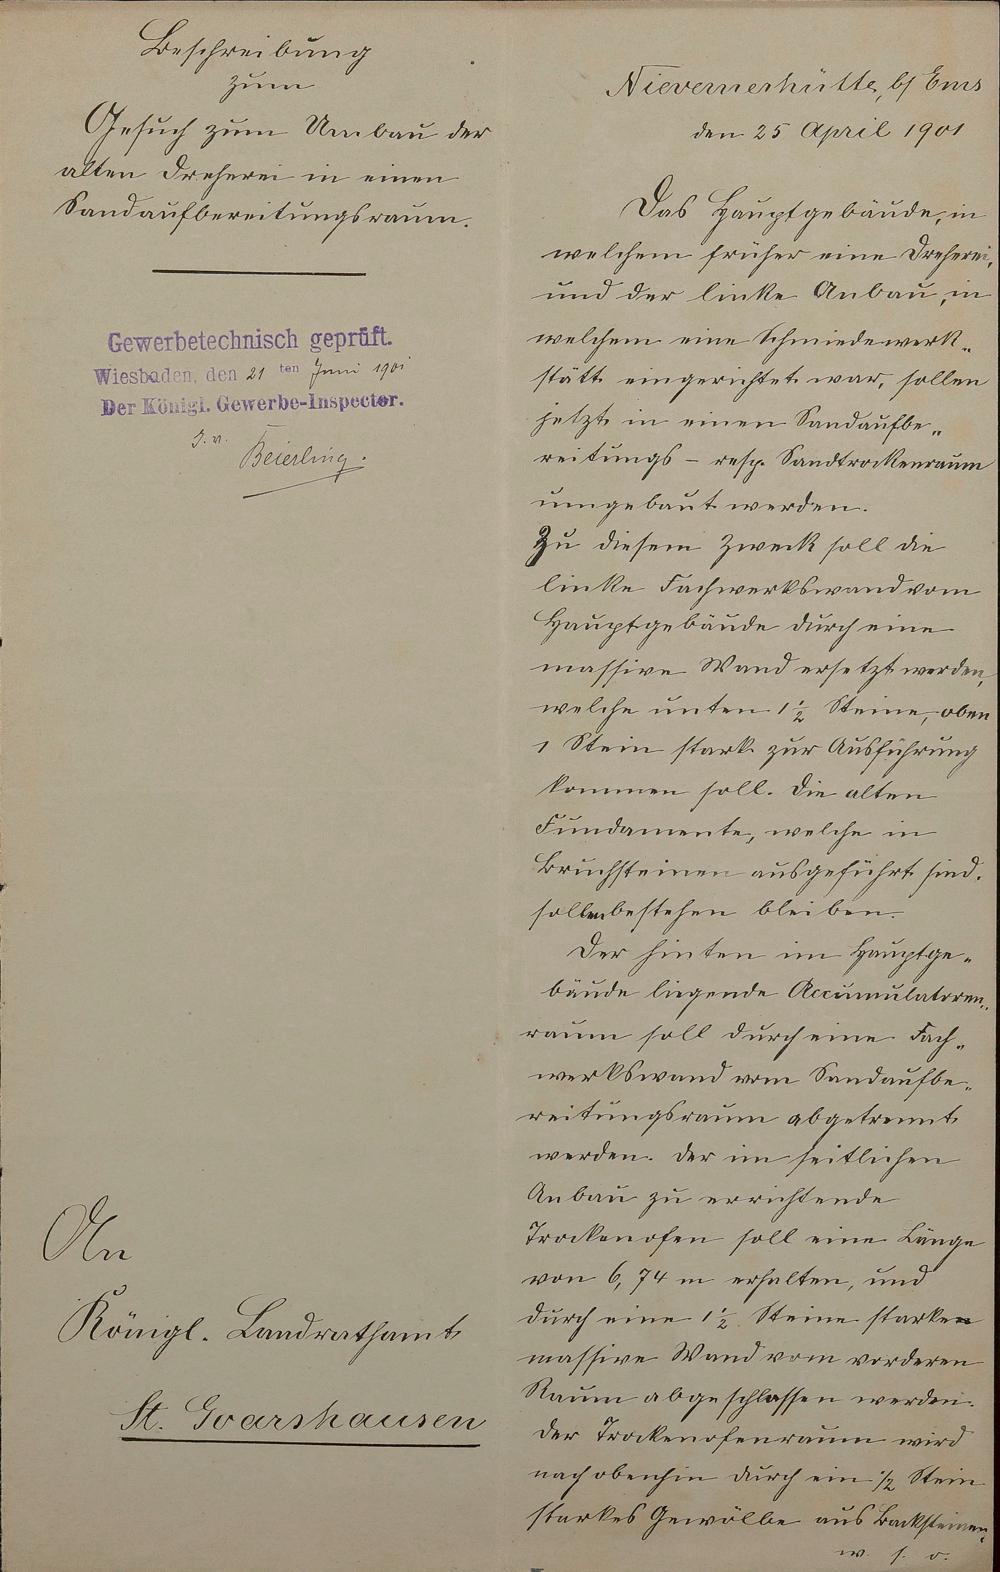 Beschreibung
zum
Gesuch zum Umbau der
alten Dreherei in einen
Sandaufbereitungsraum.
Gewerbetechnisch geprüft.
Wiesbaden, den 21 ten Juni 1901
Der Königl. Gewerbe-Inspector.
I. v.
Beierling.
An
Königl. Landrathamt
St. Goarshausen
Nievernerhütte, b/ Ems
den 25 April 1901
Das Hauptgebäude, in
welchem früher eine Dreherei,
und der linke Anbau, in
welchem eine Schmiedewerk„
stätte eingerichtet war, sollen
jetzt in einen Sandaufbe„
reitungs – resp. Sandtrockenraum
umgebaut werden.
Zu diesem Zweck soll die
linke Fachwerkswand vom
Hauptgebäude durch eine
massive Wand ersetzt werden,
welche unten 1 1/2 Steine, oben
1 Stein stark zur Ausführung
kommen soll. Die alten
Fundamente, welche in
Bruchsteinen ausgeführt sind.
sollen bestehen bleiben.
Der hinten im Hauptge„
bäude liegende Accumulatoren„
raum soll durch eine Fach„
werkswand vom Sandaufbe„
reitungsraum abgetrennt
werden. Der im seitlichen
Anbau zu errichtende
Trockenofen soll eine Länge
von 6,74 m erhalten, und
durch eine 1 1/2 Steine starken
massive Wand vom vorderen
Raum abgeschlossen werden.
Der Trockenofenraum wird
nach obenhin durch ein 1/2 Stein
starkes Gewölbe aus Backsteinen,
w. s. o.